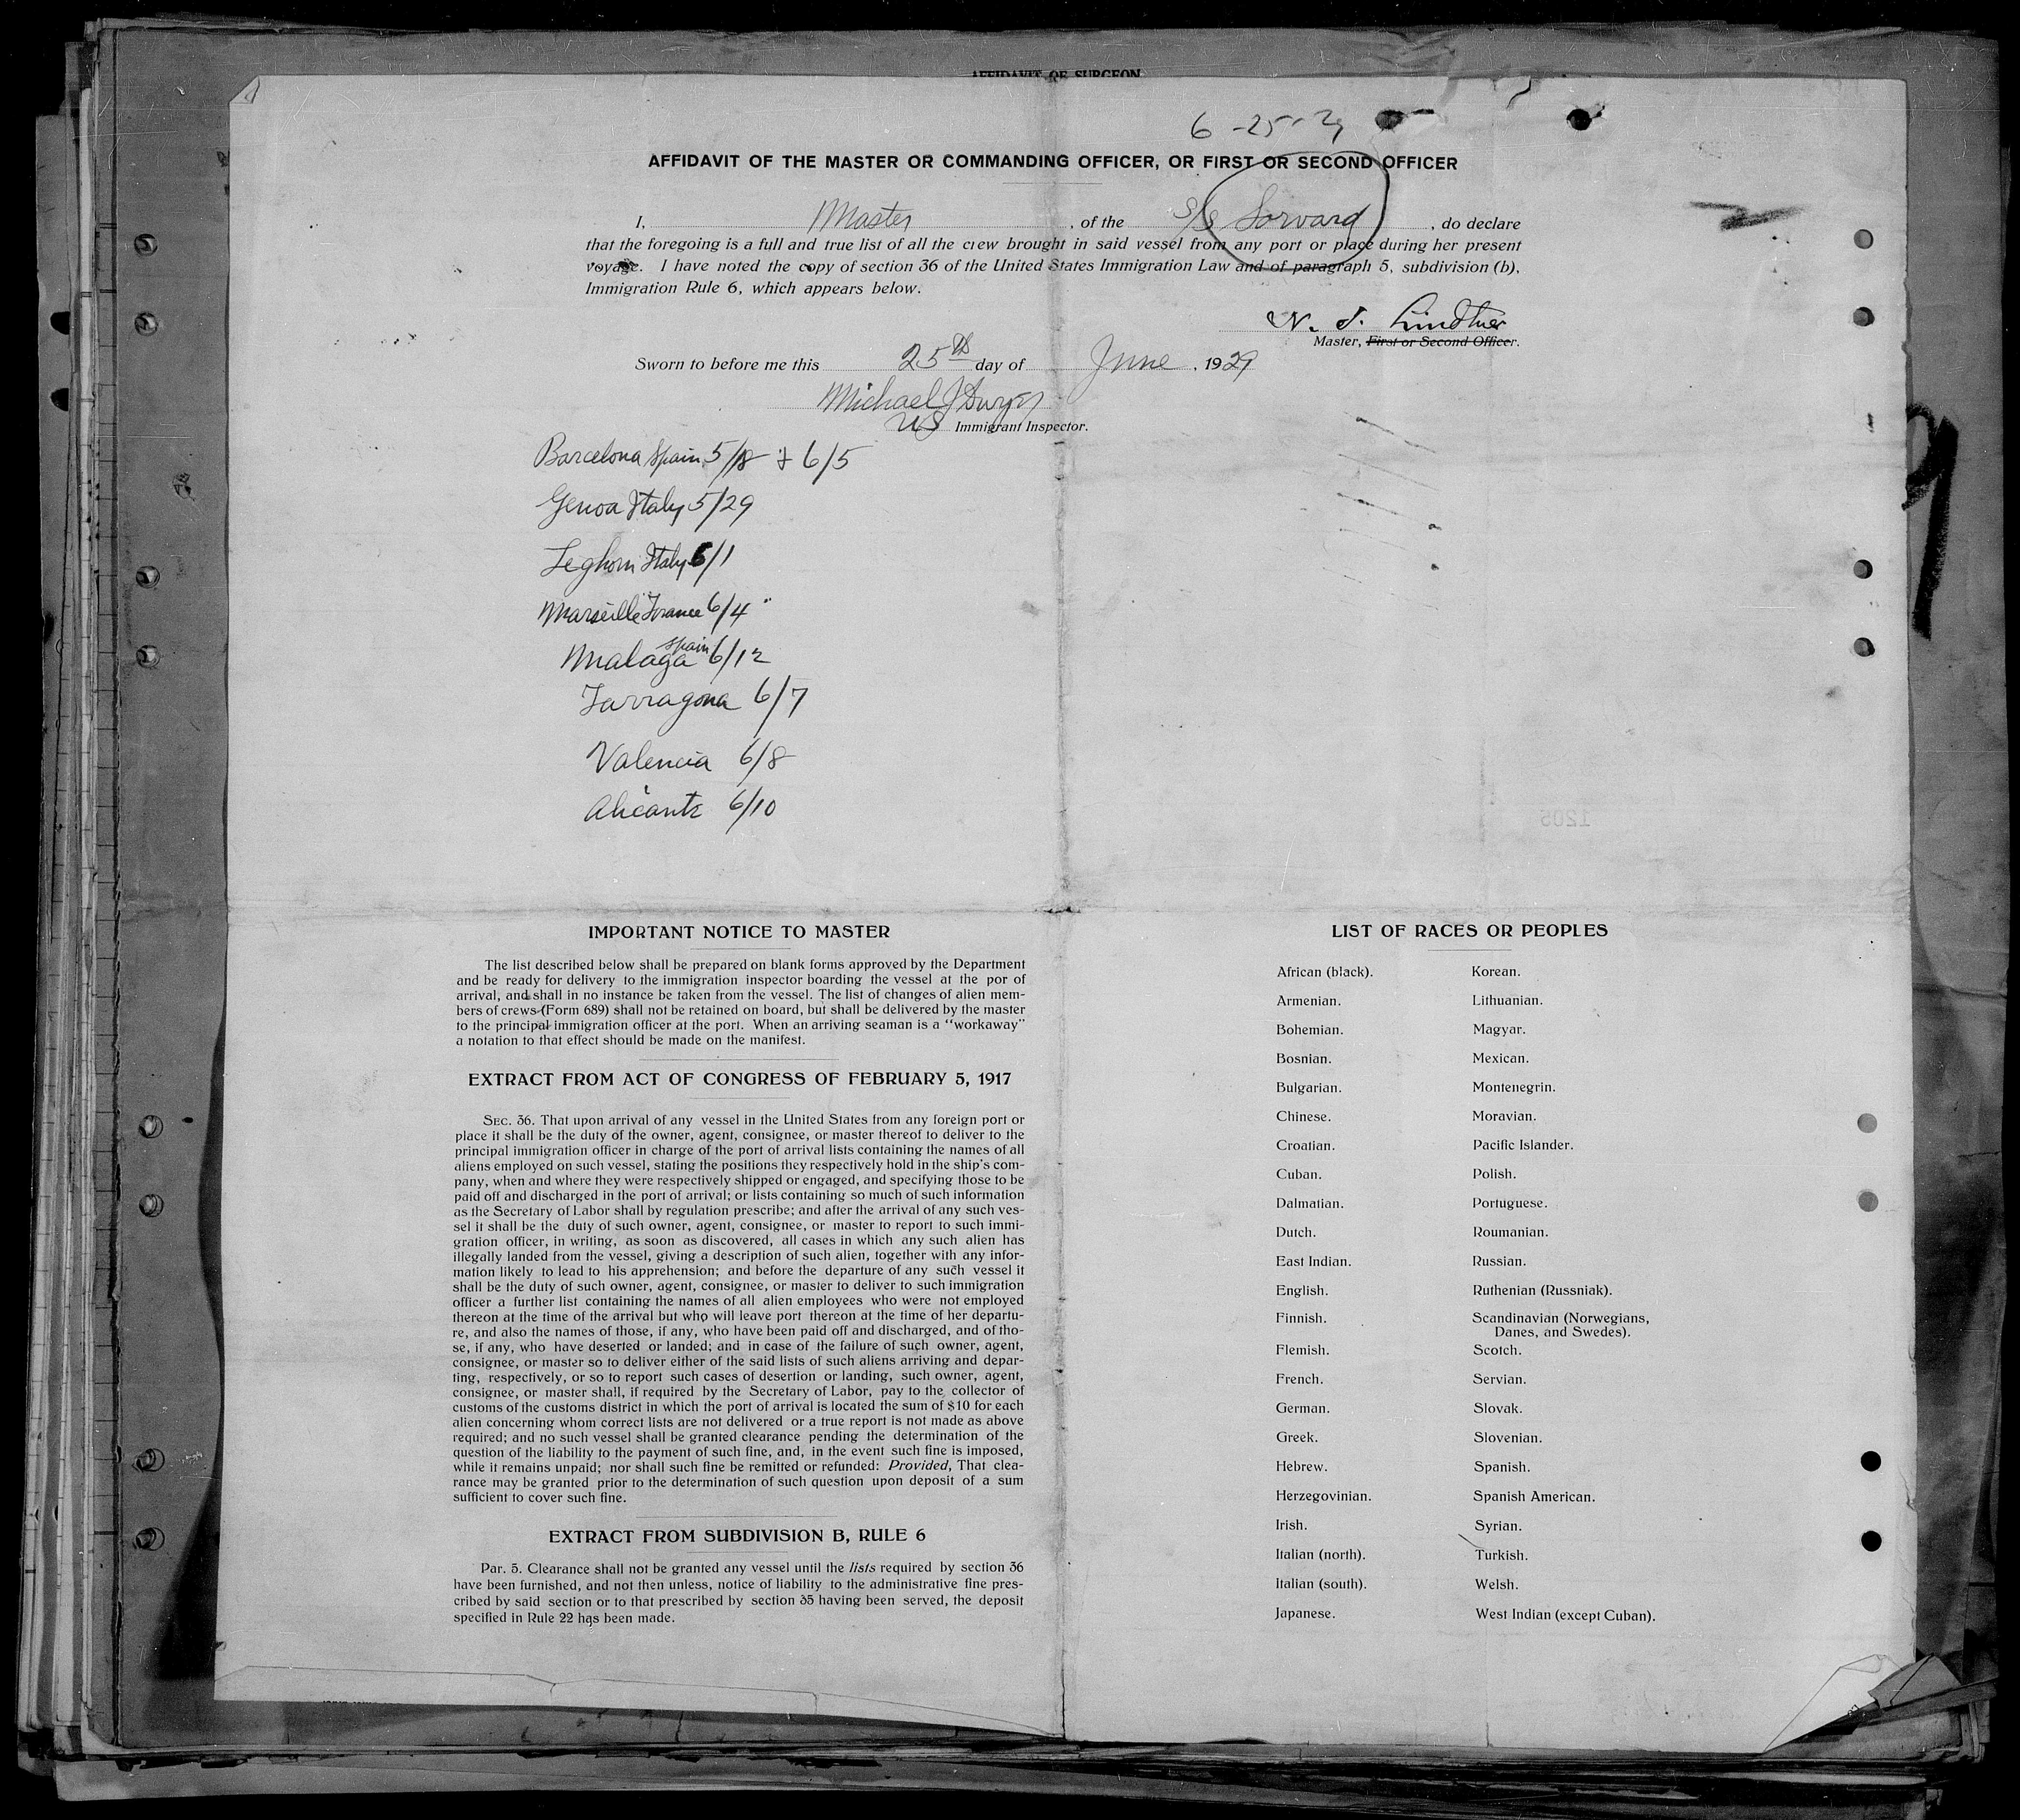 AFFIDAVIT OF SURGEON
6-25-29
AFFIDAVIT OF THE MASTER OR COMMANDING OFFICER, OR FIRST OR SECOND OFFICER
I, Master, of the S/S Sorvard, do declare
that the foregoing is a full and true list of all the crew brought in said vessel from any port or place during her present
voyage. I have noted the copy of section 36 of the United States Immigration Law and of paragraph 5, subdivision (b),
Immigration Rule 6, which appears below.
N. J. Lindtner
Master, First or Second Officer.
Sworn to before me this 25th day of June, 1929
Michael J Dwyer
US Immigrant Inspector.
Barcelona Spain 5/18 + 6/5
Genoa Italy 5/29
Leghorn Italy 6/1
Marseille France 6/4
Malaga Spain 6/12
Tarragona 6/7
Valencia 6/8
Alicante 6/10
1205
IMPORTANT NOTICE TO MASTER
The list described below shall be prepared on blank forms approved by the Department
and be ready for delivery to the immigration inspector boarding the vessel at the por of
arrival, and shall in no instance be taken from the vessel. The list of changes of alien mem-
bers of crews (Form 689) shall not be retained on board, but shall be delivered by the master
to the principal immigration officer at the port. When an arriving seaman is a "workaway"
a notation to that effect should be made on the manifest.
EXTRACT FROM ACT OF CONGRESS OF FEBRUARY 5, 1917
SEC. 36. That upon arrival of any vessel in the United States from any foreign port or
place it shall be the duty of the owner, agent, consignee, or master thereof to deliver to the
principal immigration officer in charge of the port of arrival lists containing the names of all
aliens employed on such vessel, stating the positions they respectively hold in the ship's com-
pany, when and where they were respectively shipped or engaged, and specifying those to be
paid off and discharged in the port of arrival; or lists containing so much of such information
as the Secretary of Labor shall by regulation prescribe; and after the arrival of any such ves-
sel it shall be the duty of such owner, agent, consignee, or master to report to such immi-
gration officer, in writing, as soon as discovered, all cases in which any such alien has
illegally landed from the vessel, giving a description of such alien, together with any infor-
mation likely to lead to his apprehension; and before the departure of any such vessel it
shall be the duty of such owner, agent, consignee, or master to deliver to such immigration
officer a further list containing the names of all alien employees who were not employed
thereon at the time of the arrival but who will leave port thereon at the time of her departu-
re, and also the names of those, if any, who have been paid off and discharged, and of tho-
se, if any, who have deserted or landed; and in case of the failure of such owner, agent,
consignee, or master so to deliver either of the said lists of such aliens arriving and depar-
ting, respectively, or so to report such cases of desertion or landing, such owner, agent,
consignee, or master shall, if required by the Secretary of Labor, pay to the collector of
customs of the customs district in which the port of arrival is located the sum of $10 for each
alien concerning whom correct lists are not delivered or a true report is not made as above
required; and no such vessel shall be granted clearance pending the determination of the
question of the liability to the payment of such fine, and, in the event such fine is imposed,
while it remains unpaid; nor shall such fine be remitted or refunded: Provided, That clea-
rance may be granted prior to the determination of such question upon deposit of a sum
sufficient to cover such fine.
EXTRACT FROM SUBDIVISION B, RULE 6
Par. 5. Clearance shall not be granted any vessel until the lists required by section 36
have been furnished, and not then unless, notice of liability to the administrative fine pres-
cribed by said section or to that prescribed by section 35 having been served, the deposit
specified in Rule 22 has been made.
LIST OF RACES OR PEOPLES
African (black).
Armenian.
Bohemian.
Bosnian.
Bulgarian.
Chinese.
Croatian.
Cuban.
Dalmatian.
Dutch.
East Indian.
English.
Finnish.
Flemish.
French.
German.
Greek.
Hebrew.
Herzegovinian.
Irish.
Italian (north).
Italian (south).
Japanese.
Korean.
Lithuanian.
Magyar.
Mexican.
Montenegrin.
Moravian.
Pacific Islander.
Polish.
Portuguese.
Roumanian.
Russian.
Ruthenian (Russniak).
Scandinavian (Norwegians,
Danes, and Swedes).
Scotch.
Servian.
Slovak.
Slovenian.
Spanish.
Spanish American.
Syrian.
Turkish.
Welsh.
West Indian (except Cuban).